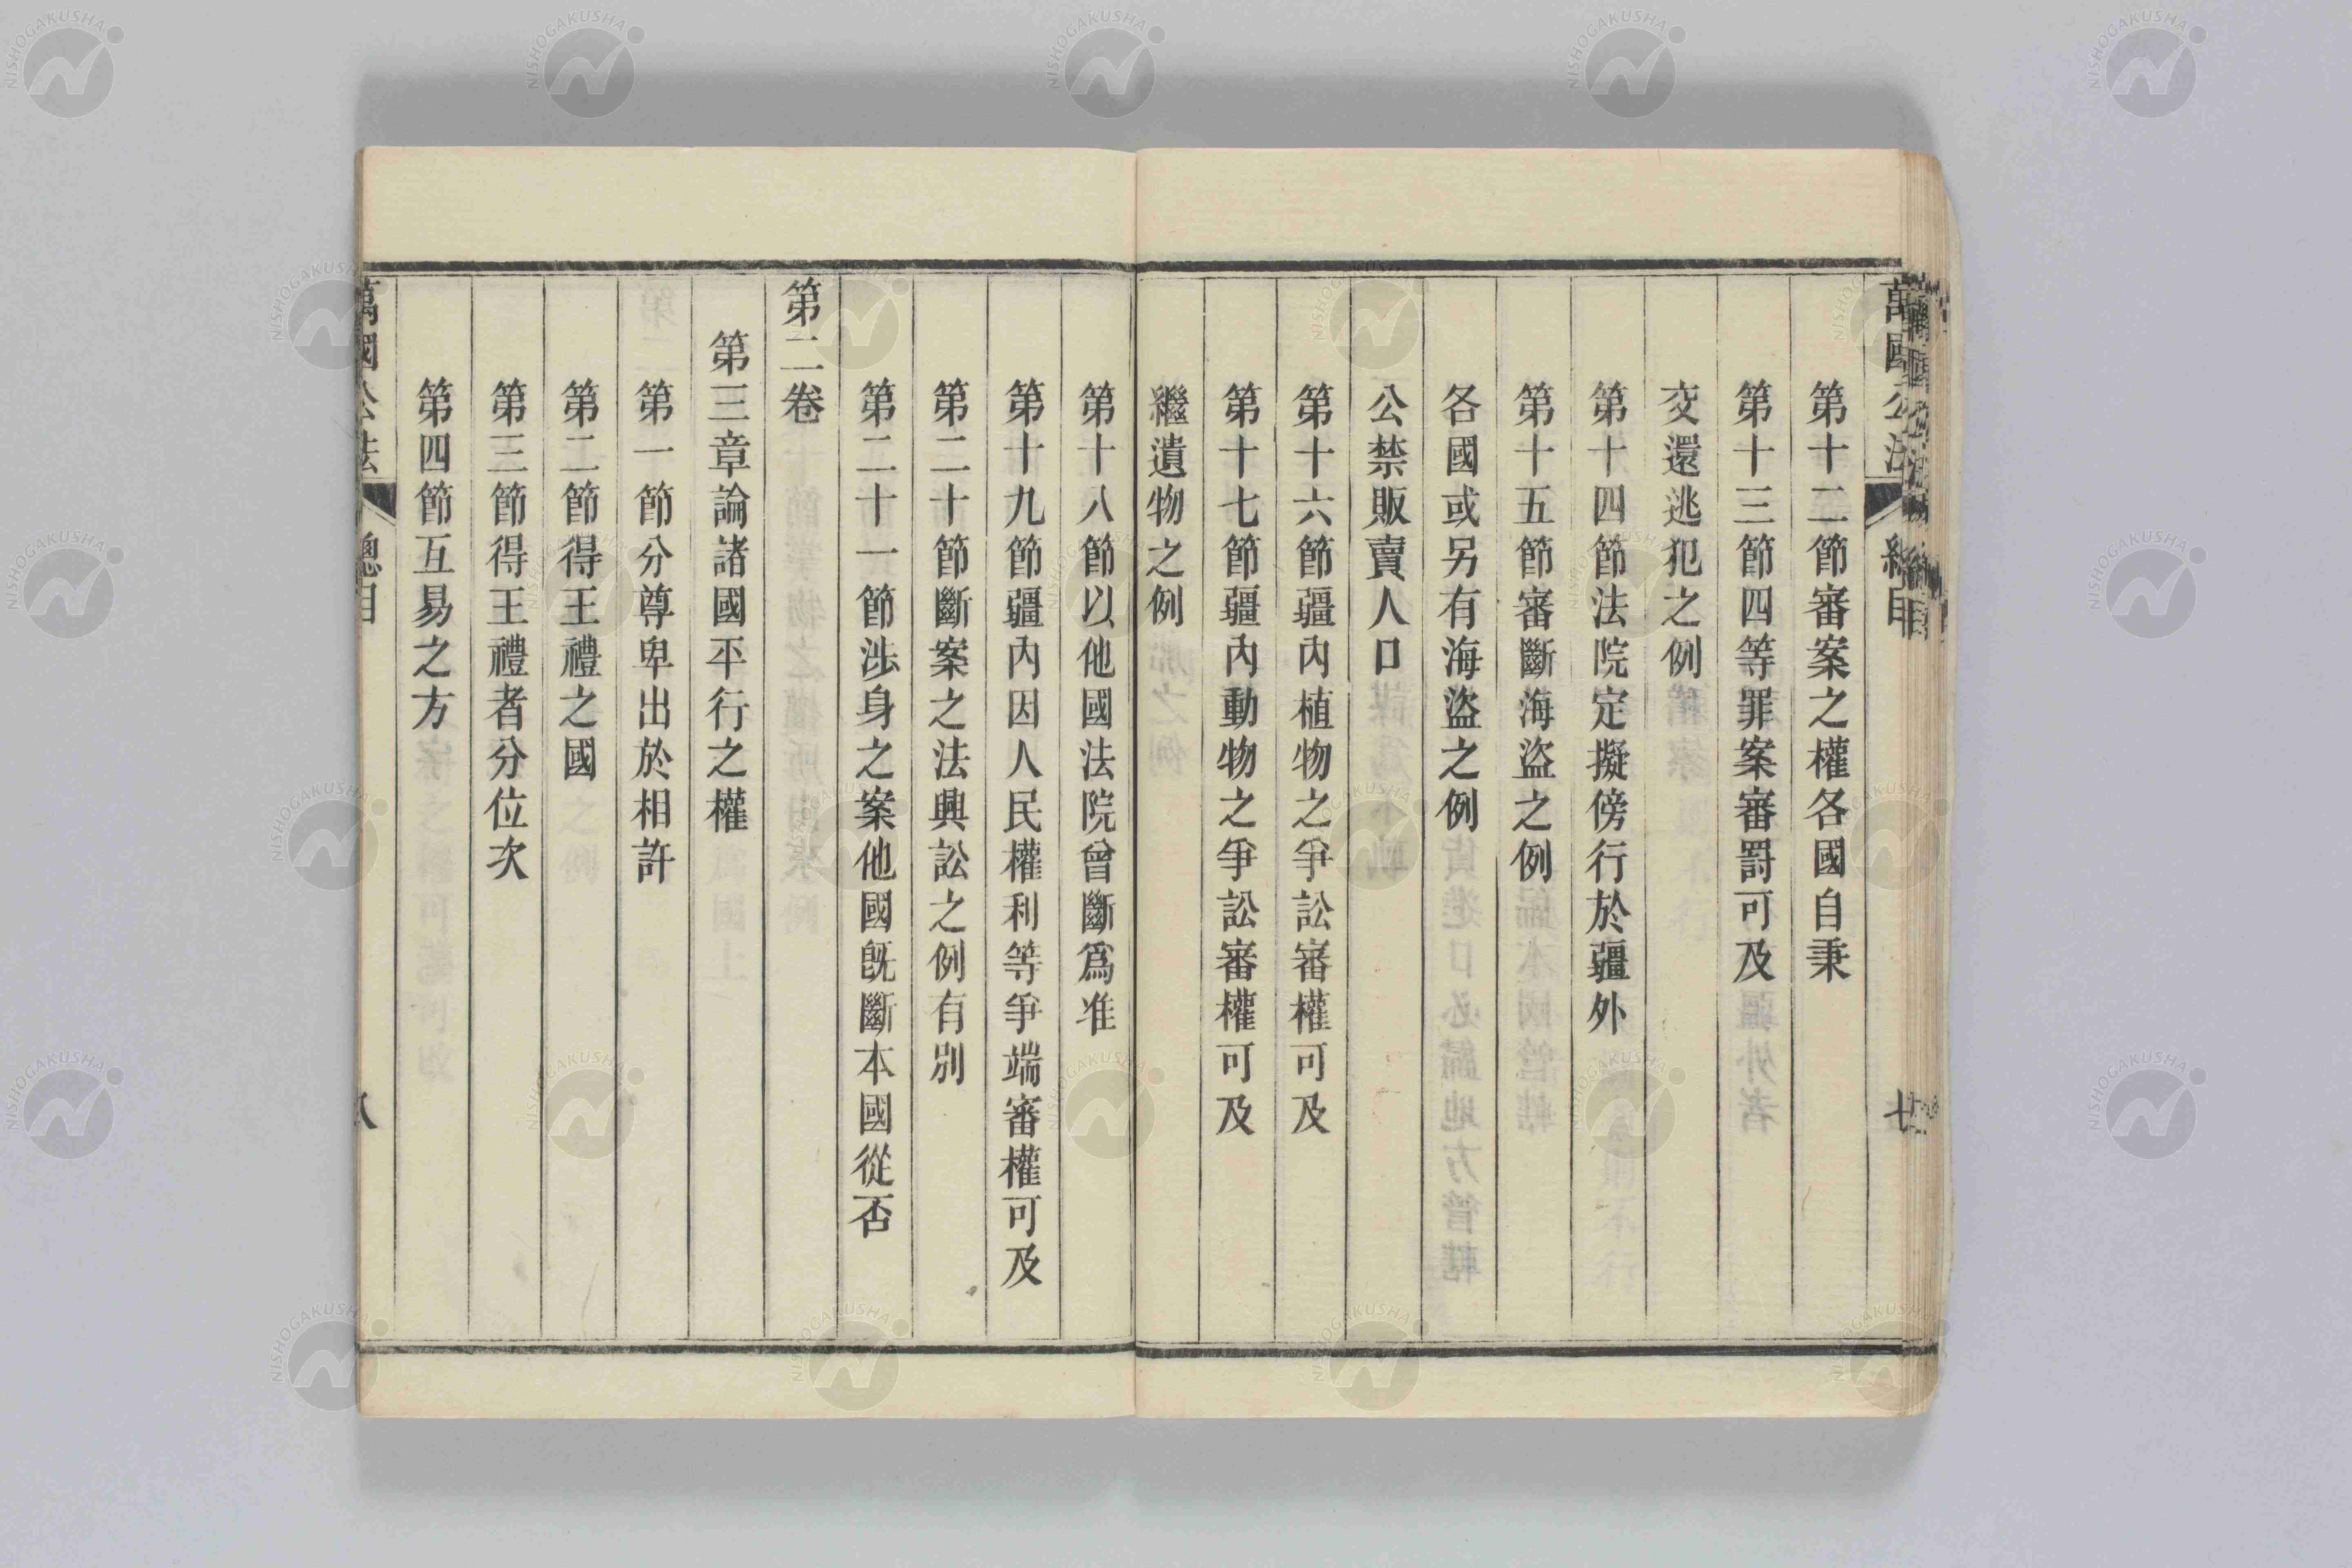 萬國公法 總目 七
第十二節審案之權各國自秉
第十三節四等罪案審罰可及
交還逃犯之例
第十四節法院定擬傍行於疆外
第十五節審斷海盜之例
各國或另有海盜之例
公禁販賣人口
第十六節疆內植物之爭訟審權可及
第十七節疆內動物之爭訟審權可及
繼遺物之例
第十八節以他國法院曾斷爲准
第十九節疆內因人民權利等爭端審權可及
第二十節斷案之法與訟之例有別
第二十一節涉身之案他國既斷本國從否
第二卷
第三章論諸國平行之權
第一節分尊卑出於相許
第二節得王禮之國
第三節得王禮者分位次
第四節互易之方
萬國公法 總目 八
NISHOGAKUSHA